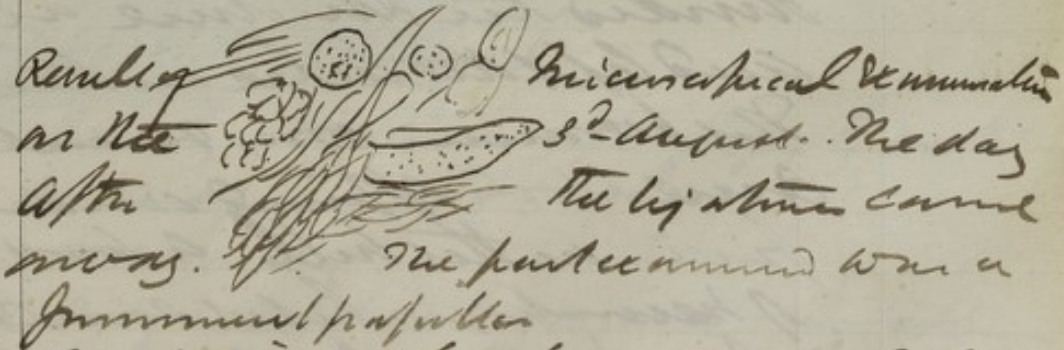 Result of Microscopical Examination
on the 3d August. The day
after the ligatures came
away. The part examined was a
prominent papilla